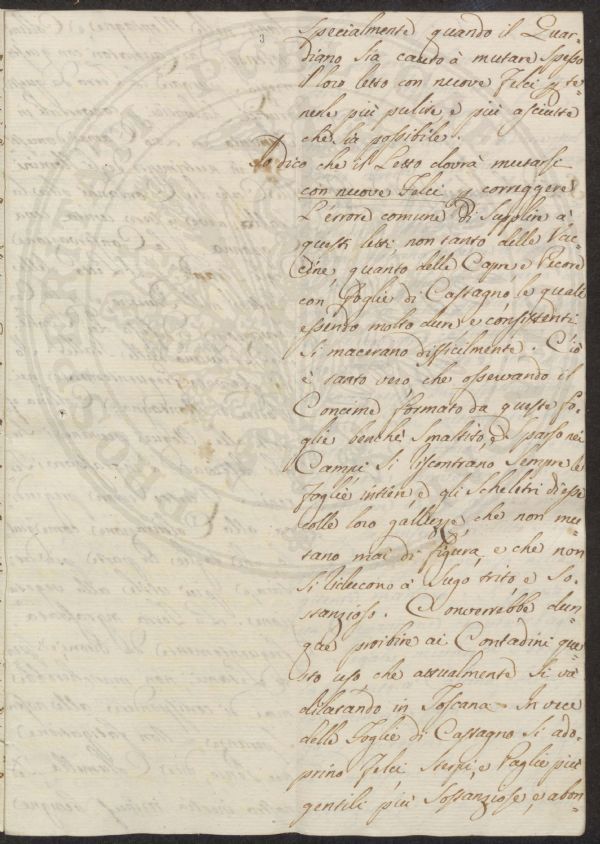 3
specialmente quando il Guar-
diano sia cauto à mutare spesso
il loro letto con nuove Felci p te-
nerle più pulite e più asciutte
che sia possibile.
Io dico che il Letto dovrà mutarsi
con nuove Felci p correggere
L'errore comune di supplire à
questi letti non tanto delle Vac-
cine, quanto delle Capre e Pecore
con Foglie di Castagno, le quali
essendo molto dure e consistenti
si macerano difficilmente. Ciò
è tanto vero che osservando il
Concime formato da queste fo-
glie benchè smaltito, e sparso nei
Campi si riscontrano sempre le
foglie intiere e gli scheletri di esse
colle loro gallezze che non mu-
tano mai di figura, e che non
si riducono à sugo trito e so-
stanzioso. Converrebbe dun-
que proibire ai Contadini que-
sto uso, che attualmente si va
dilatando in Toscana. In vece
delle Foglie di Castagno si ado-
prino Felci Sterpi, e Paglie più
gentili più sostanziose, e abon-